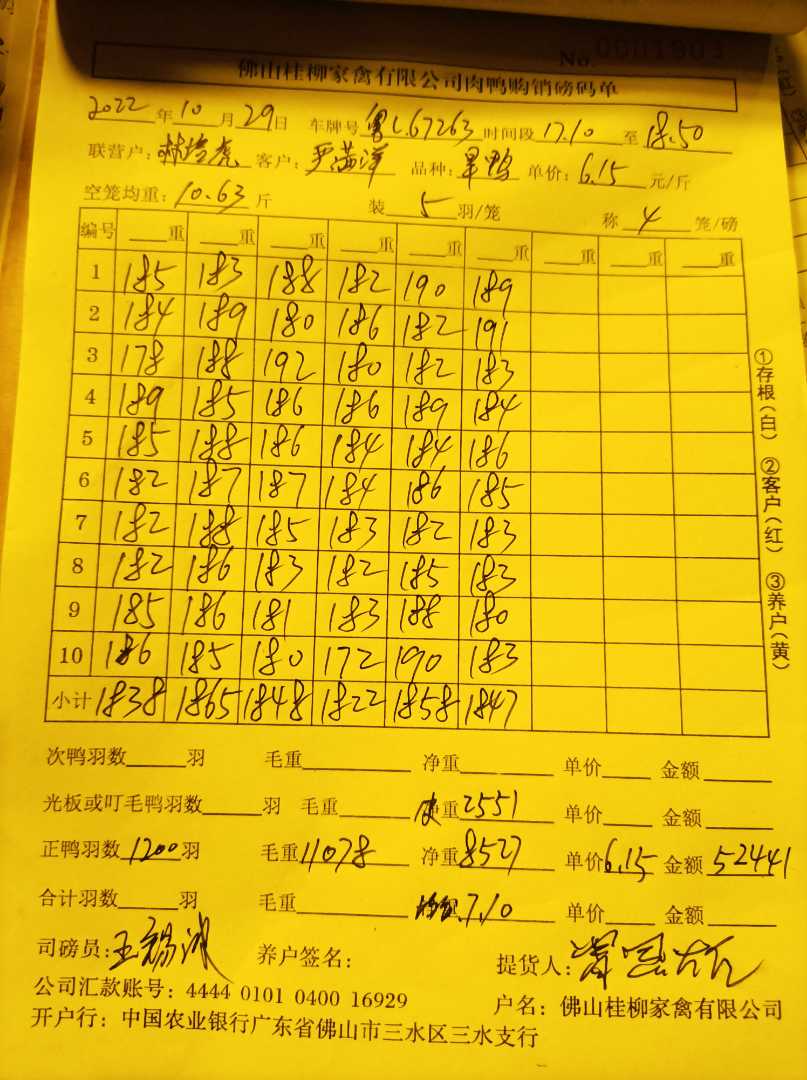 No. 0001903
佛山桂柳家禽有限公司肉鸭购销磅码单
2022年10月29日 车牌号粤L.67263时间段17.10至18.50
联营户: 客户:严满洋 品种:旱鸭 单价:6.15元/斤
空笼均重:10.63斤 装5羽/笼 称4笼/磅
编号 重 重 重 重 重 重 重 重 重
1 185 183 188 182 190 189
2 184 189 180 186 182 191
3 178 188 192 180 182 183
4 189 185 186 186 189 184
5 185 188 186 184 184 186
6 182 187 187 184 186 185
7 182 188 185 183 182 183
8 182 186 183 182 185 183
9 185 186 181 183 188 180
10 186 185 180 172 190 183
小计 1838 1865 1848 1822 1858 1847
①存根(白) ②客户(红) ③养户(黄)
次鸭羽数 羽 毛重 净重 单价 金额
光板或叮毛鸭羽数 羽 毛重 皮重2551 单价 金额
正鸭羽数1200羽 毛重11078 净重8527 单价6.15 金额52441
合计羽数 羽 毛重 7.10 单价 金额
司磅员:王锡斌 养户签名: 提货人:
公司汇款账号:4444 0101 0400 16929 户名:佛山桂柳家禽有限公司
开户行:中国农业银行广东省佛山市三水区三水支行